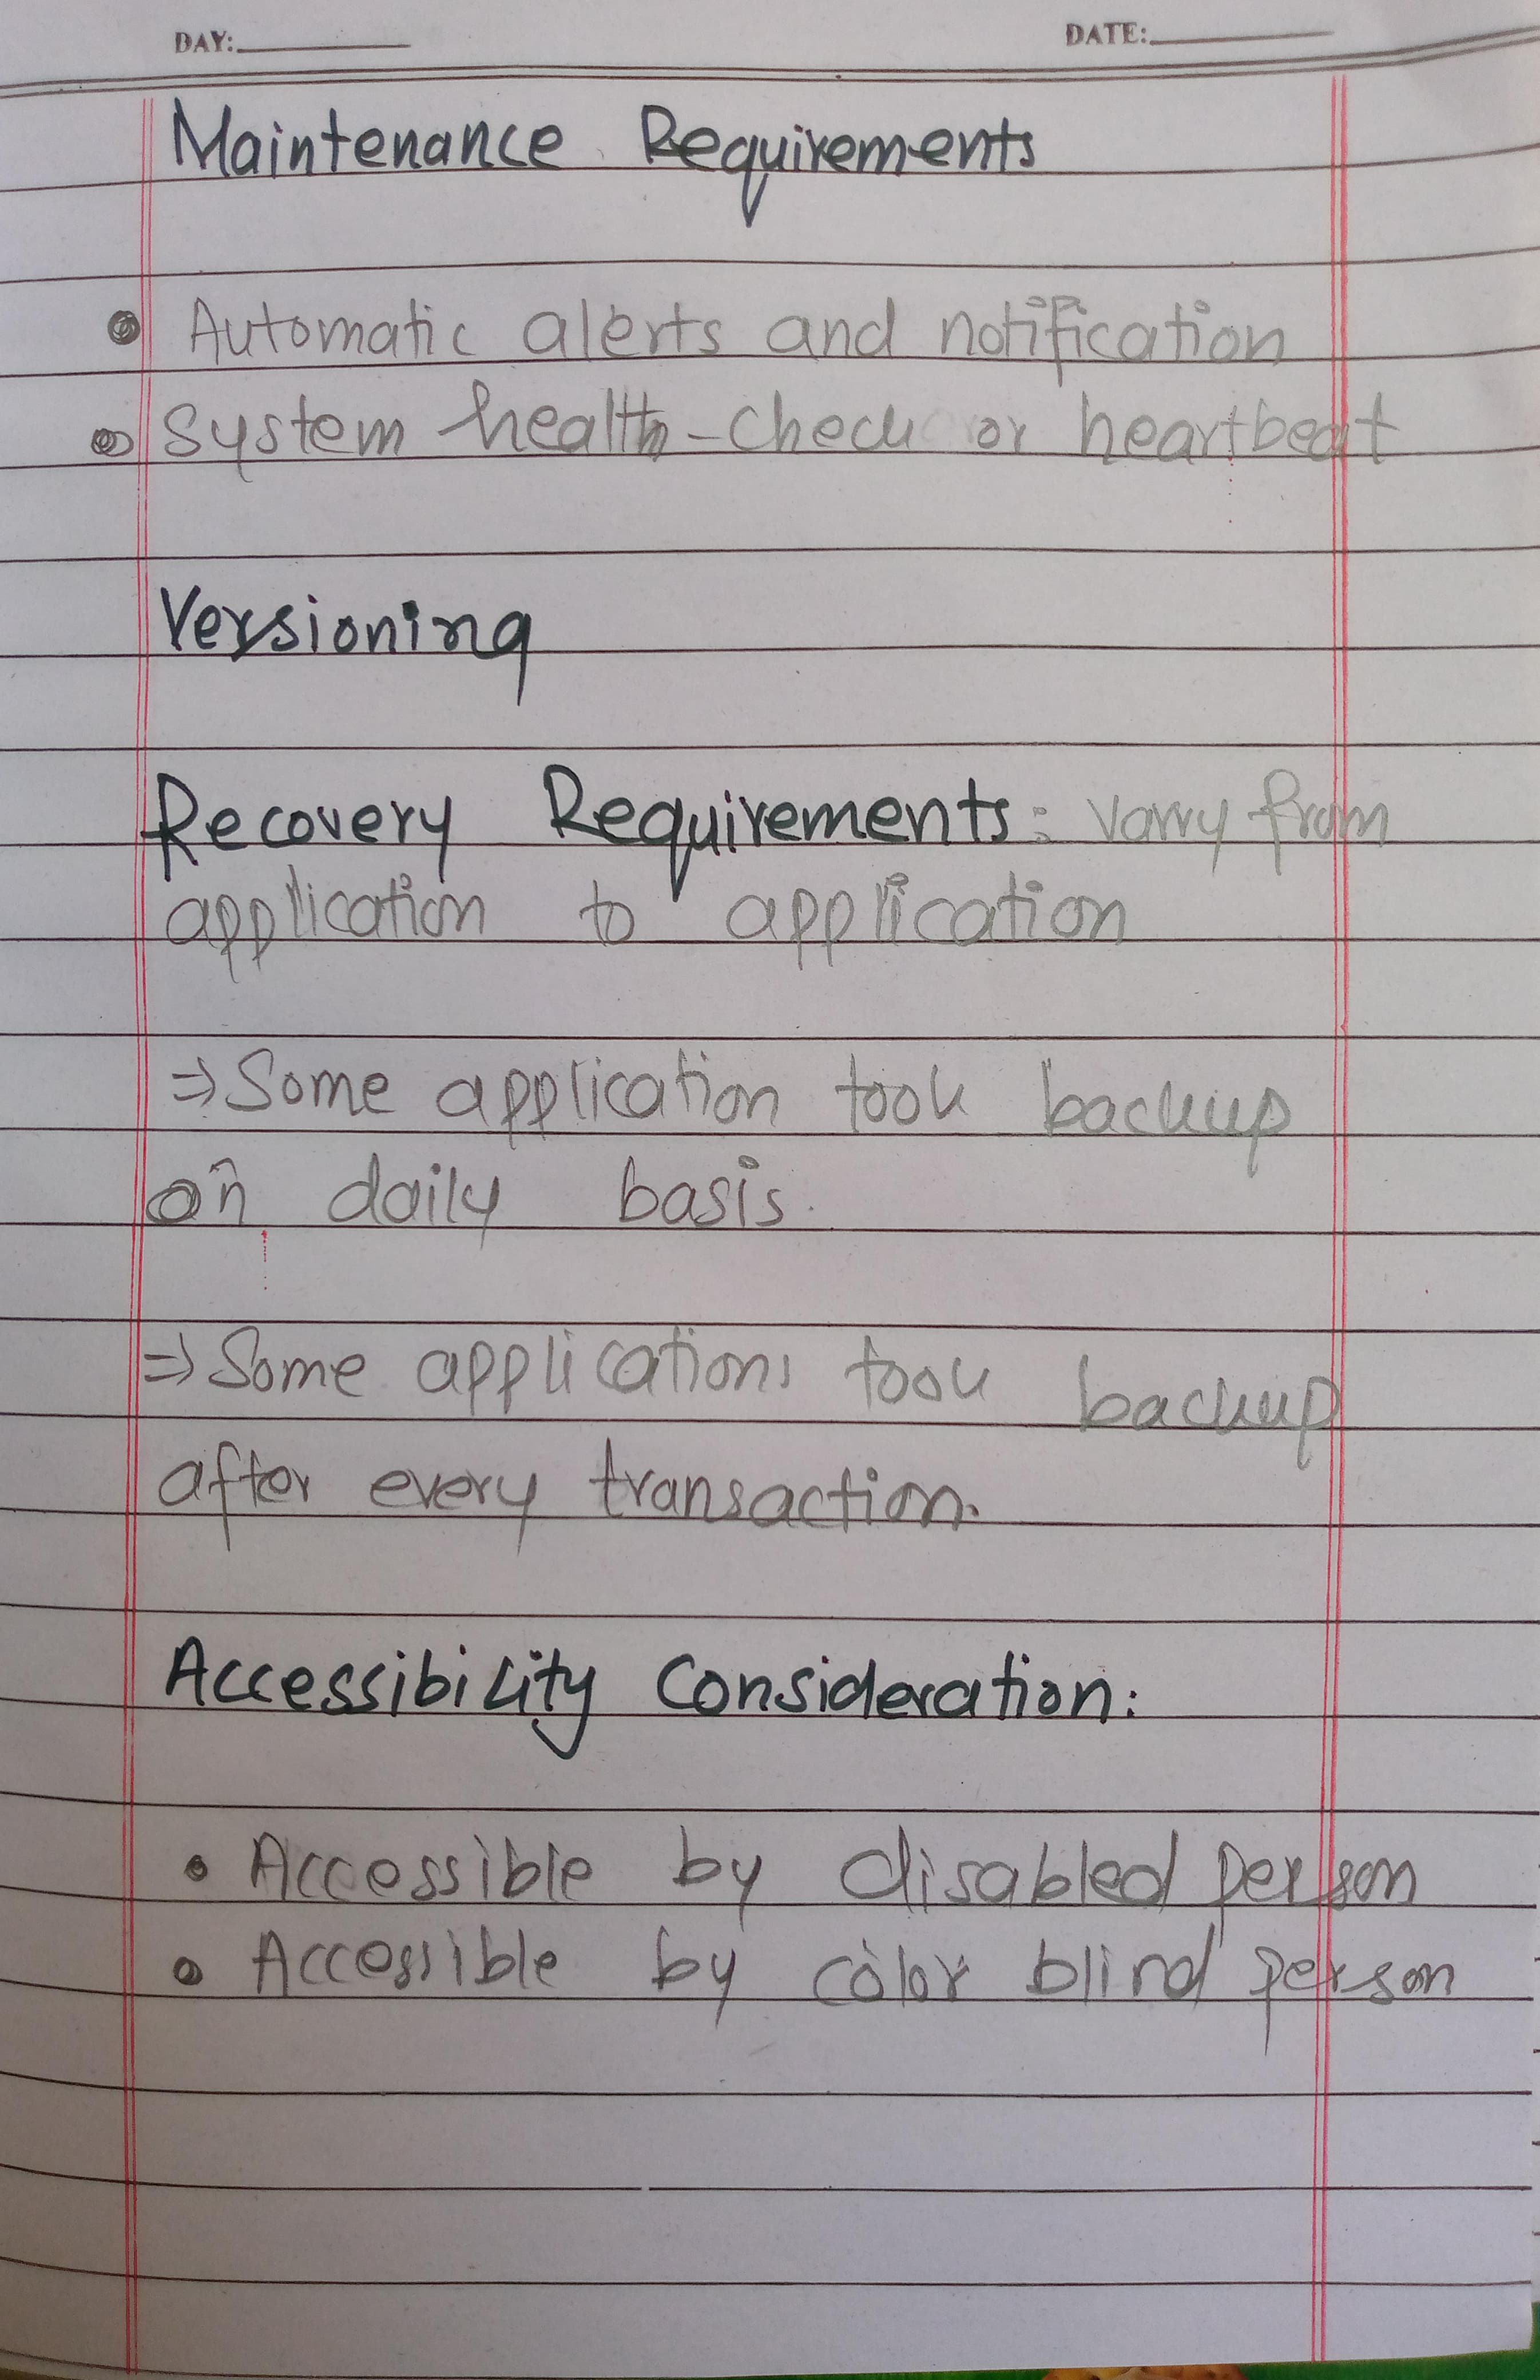 DAY:
DATE:
Maintenance Requirements
• Automatic alerts and notification
• System health-check or heartbeat
Versioning
Recovery Requirements: varry from
application to application
⇒ Some application took backup
on daily basis.
⇒ Some applications took backup
after every transaction.
Accessibility Consideration:
• Accessible by disabled person
• Accessible by color blind person